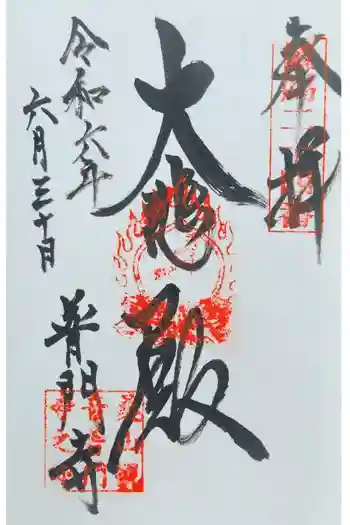 奉拝
大悲殿
令和六年
六月三十日
普門寺